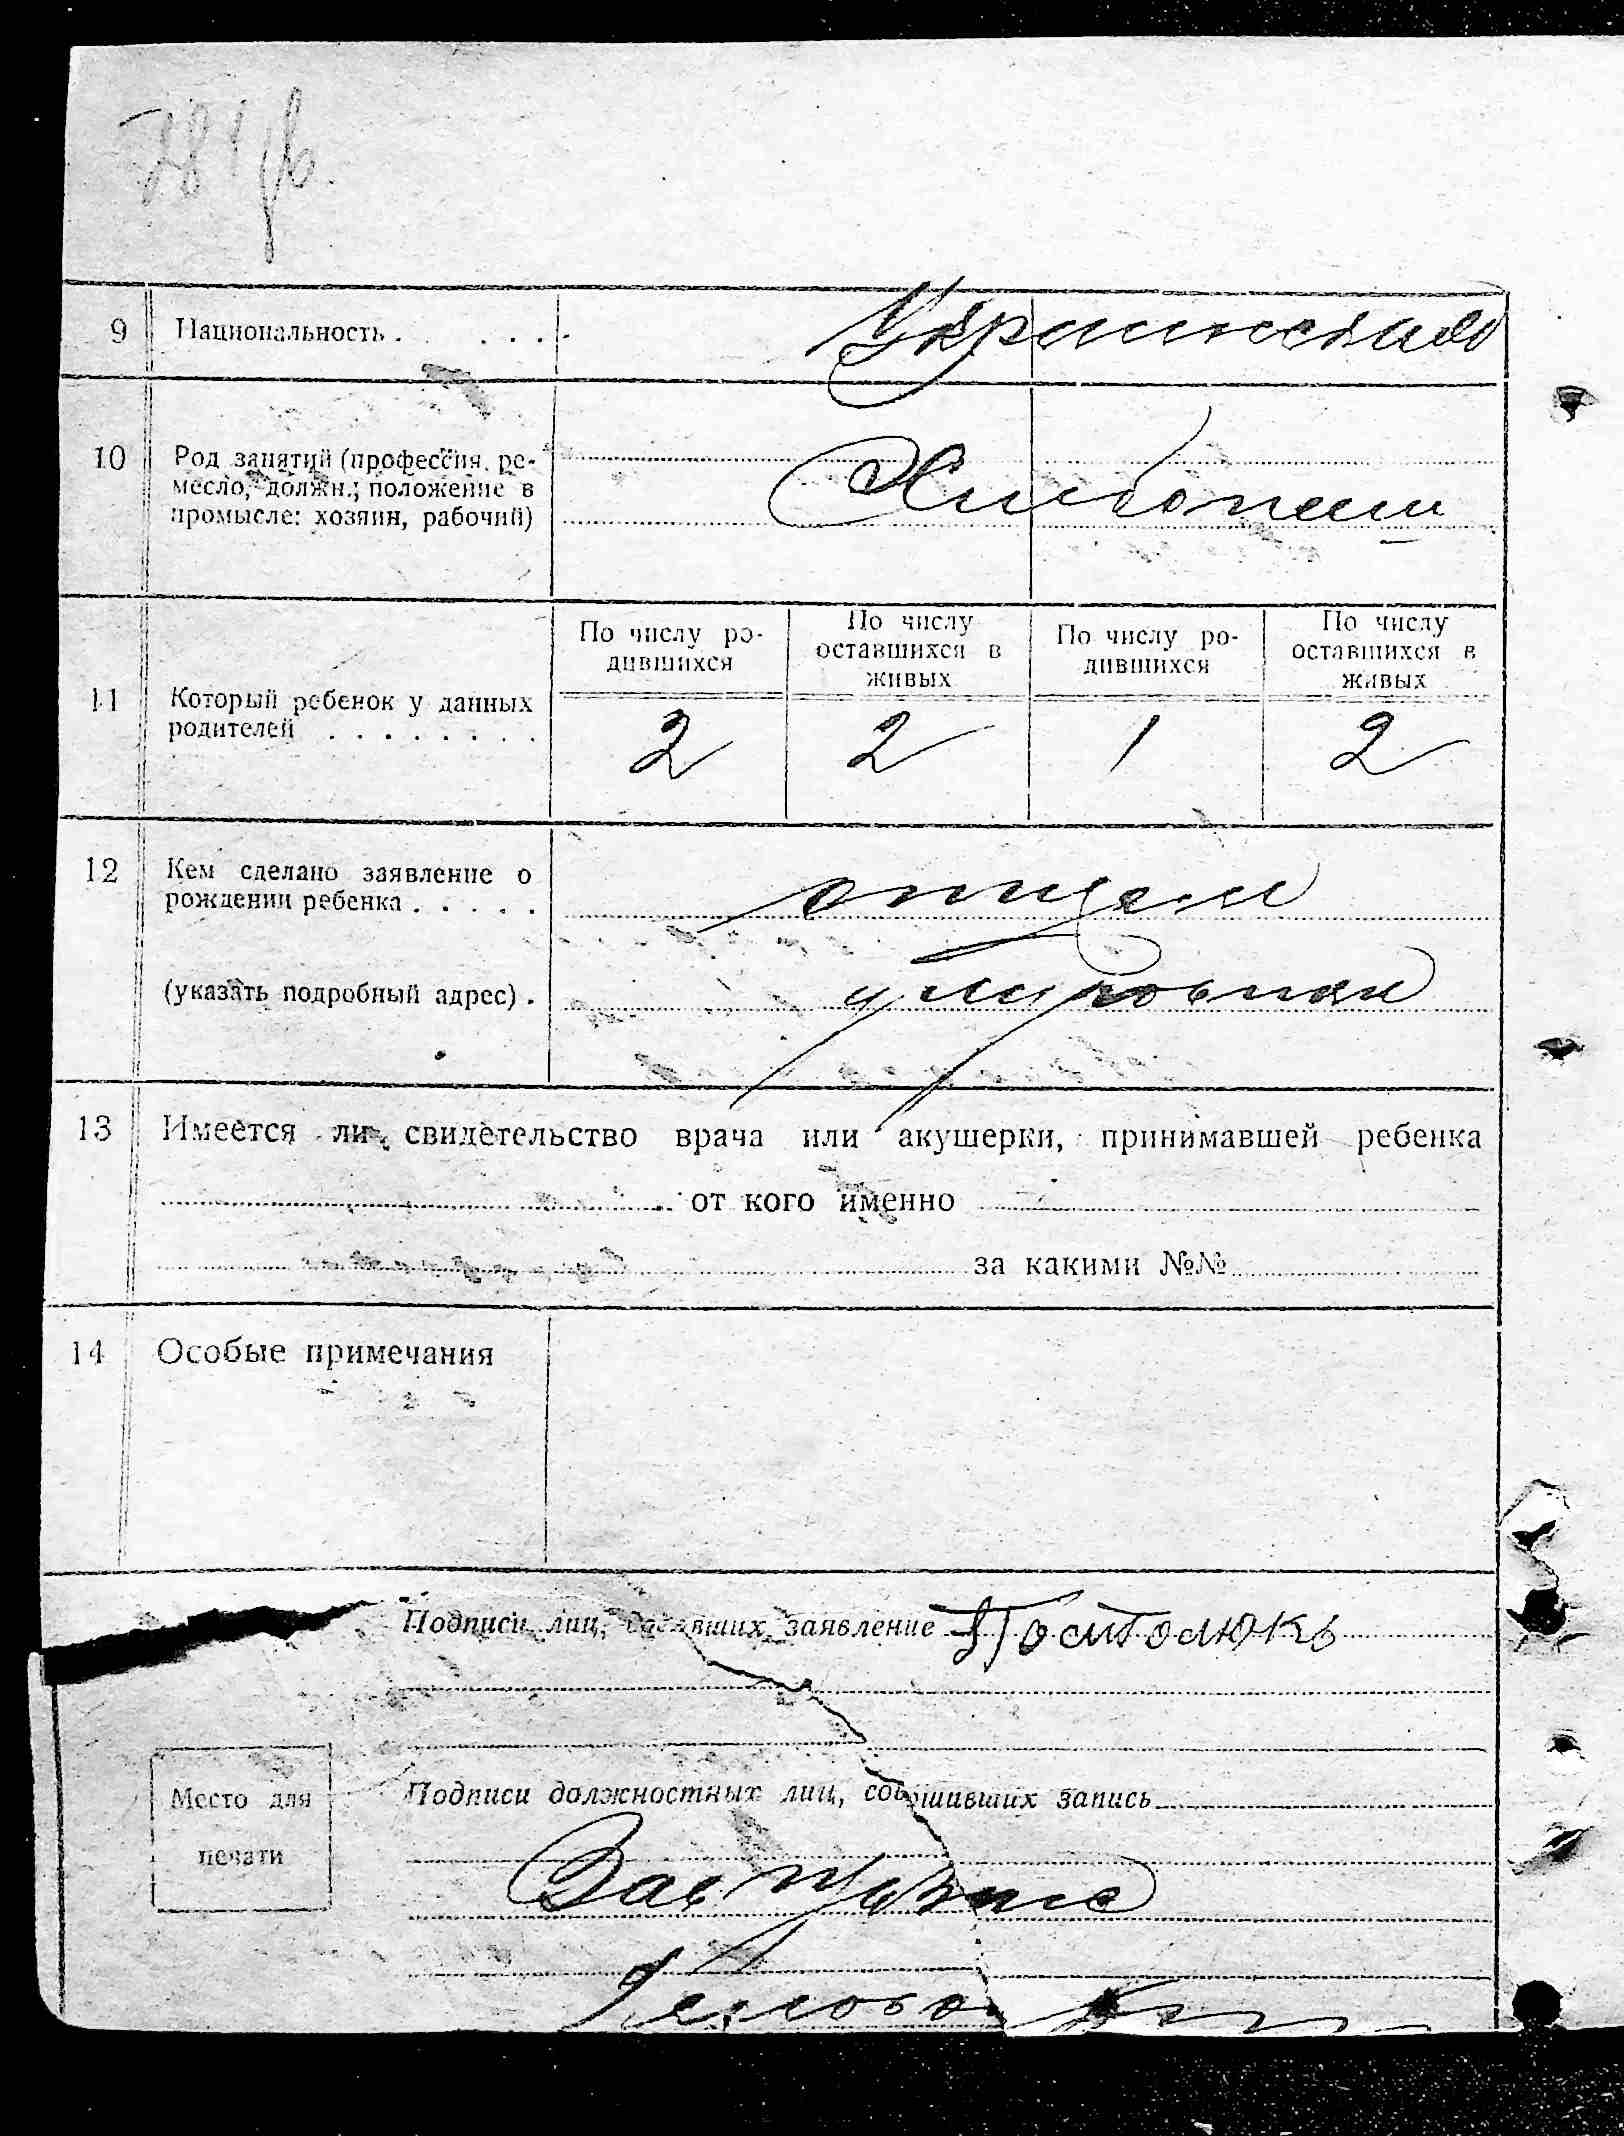 9 Национальность . . . . . Украинская
10 Род занятий (профессия, ре-
месло, должн.; положение в
промысле: хозяин, рабочий)
Хлибопаш
По числу ро-
дившихся
По числу
оставшихся в
живых
По числу ро-
дившихся
По числу
оставшихся в
живых
11 Который ребенок у данных
родителей . . . . . . . .
2 2 1 2
12 Кем сделано заявление о
рождении ребенка . . . . .
отцем
(указать подробный адрес) .
13 Имеется ли свидетельство врача или акушерки, принимавшей ребенка
от кого именно
за какими №№
14 Особые примечания
Подписи лиц, заявление Постолюкъ
Место для
печати
Подписи должностных лиц, совершивших запись
Зав